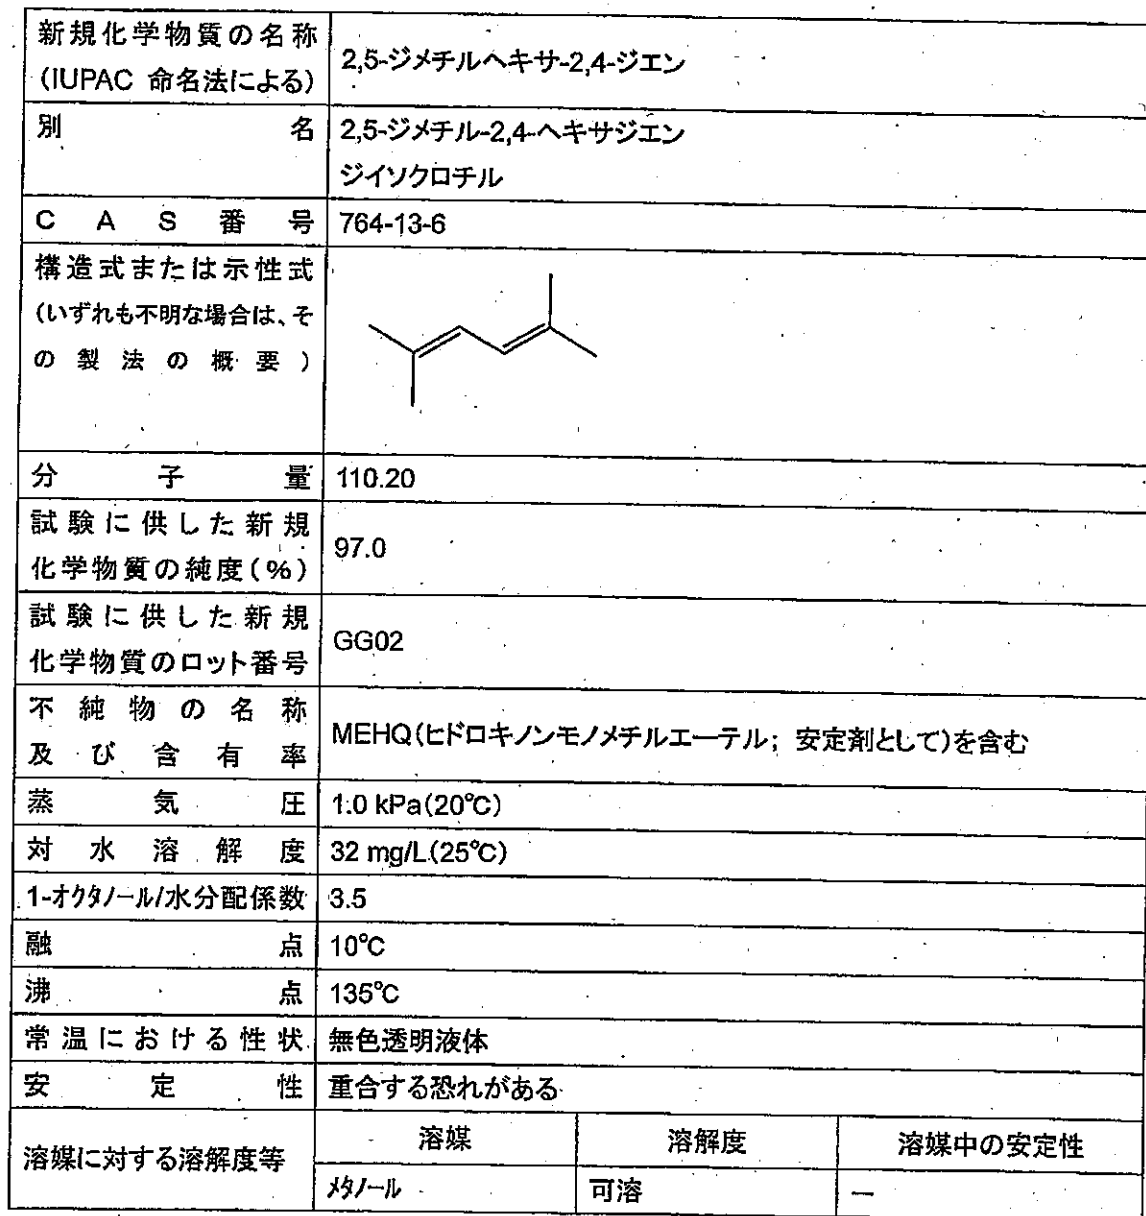 新規化学物質の名称
(IUPAC 命名法による)
2,5-ジメチルヘキサ-2,4-ジエン
別名
2,5-ジメチル-2,4-ヘキサジエン
ジイソクロチル
CAS番号
764-13-6
構造式または示性式
(いずれも不明な場合は、そ
の製法の概要)
分子量
110.20
試験に供した新規
化学物質の純度(%)
97.0
試験に供した新規
化学物質のロット番号
GG02
不純物の名称
及び含有率
MEHQ(ヒドロキノンモノメチルエーテル; 安定剤として)を含む
蒸気圧
1.0 kPa(20℃)
対水溶解度
32 mg/L(25℃)
1-オクタノール/水分配係数
3.5
融点
10℃
沸点
135℃
常温における性状
無色透明液体
安定性
重合する恐れがある
溶媒に対する溶解度等
溶媒
溶解度
溶媒中の安定性
メタノール
可溶
—